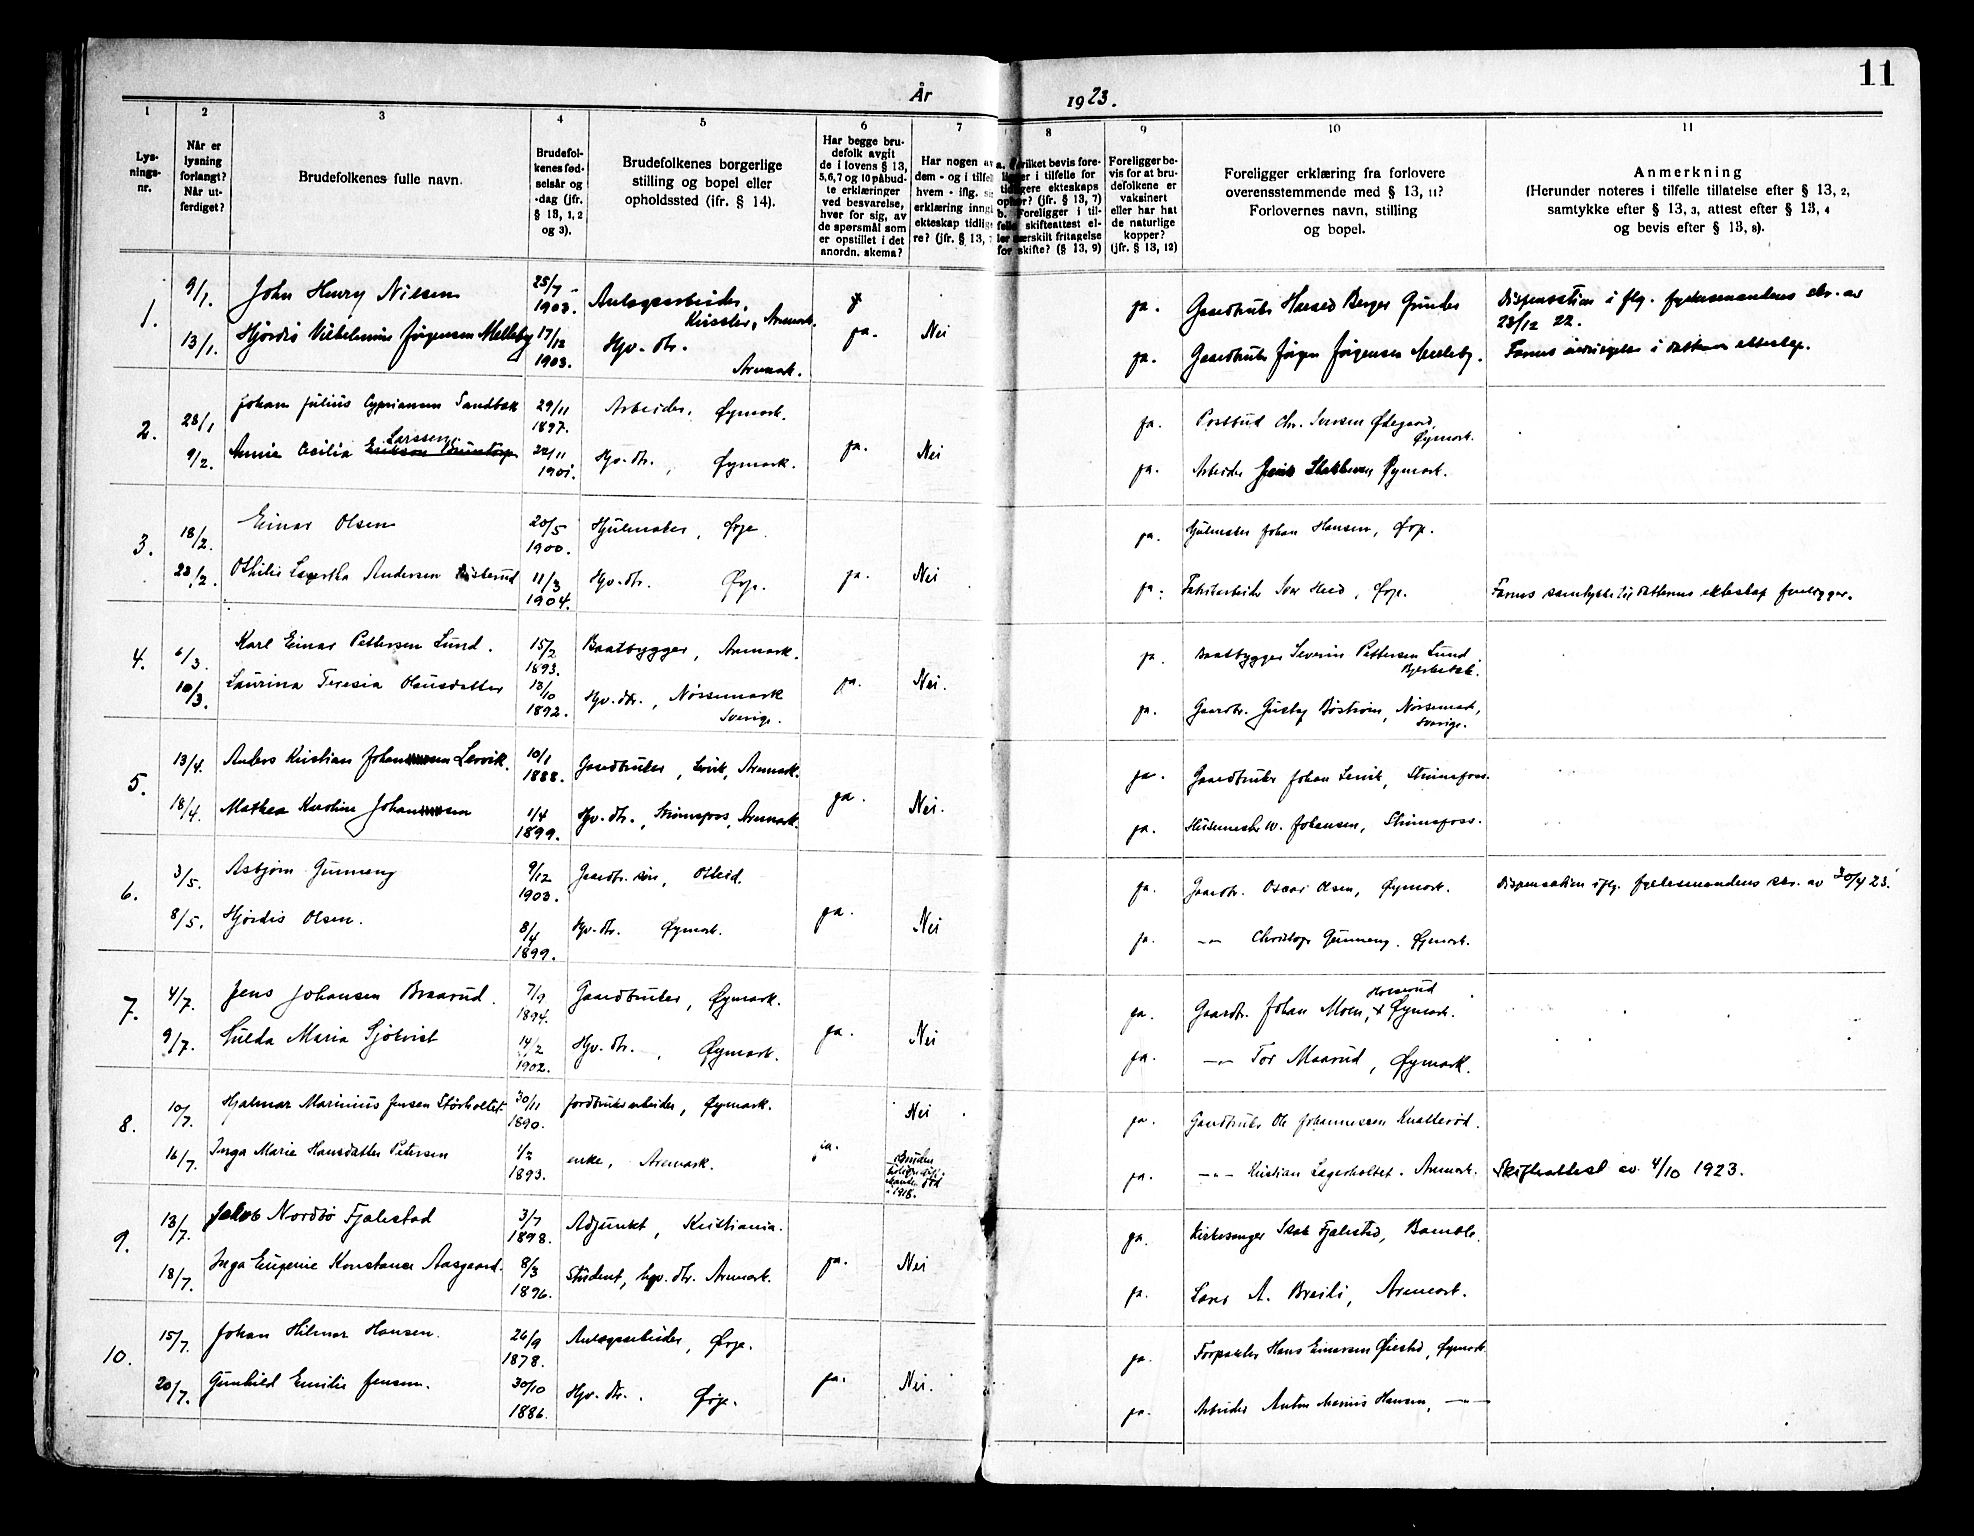 År 1923.
11
1 2 3 4 5 6 7 8 9 10 11
Lys-
nings-
nr.
Når er
lysning
forlangt?
Når ut-
ferdiget?
Brudefolkenes fulle navn.
Brudefol-
kenes fød-
selsår og
-dag (jfr.
§ 13, 1, 2
og 3).
Brudefolkenes borgerlige
stilling og bopel eller
opholdssted (ifr. § 14).
Har begge bru-
defolk avgit
de i lovens § 13,
5,6,7 og 10 påbud-
te erklæringer
ved besvarelse,
hver for sig, av
de spørsmål som
er opstillet i det
anordn. skema?
Har nogen av
dem - og i tilfel
hvem - iflg.
erklæring inngå
ekteskap tidlige
re? (jfr. § 13,
a. Hvilket bevis fore-
ligger i tilfelle for
tidligere ekteskaps
ophør? (jfr. § 13, 7)
b. Foreligger i til-
felle skifteattest el-
ler særskilt fritagelse
for skifte? (§ 13, 9)
Foreligger be-
vis for at bru-
defolkene er
vaksinert
eller har hat
de naturlige
kopper?
(jfr. § 13, 12)
Foreligger erklæring fra forlovere
overensstemmende med § 13, 11?
Forlovernes navn, stilling
og bopel.
Anmerkning
(Herunder noteres i tilfelle tillatelse efter § 13, 2,
samtykke efter § 13, 3, attest efter § 13, 4
og bevis efter § 13, 8).
1. 9/1. John Henry Nilsen 25/7 1903. Anlægsarbeider, ja. Gaardbruker Berger Dispensation i flg. fylkesmandens skr. av
Aremark. 23/12 22.
13/1. Hjørdis Vilhelmine Jørgensen Melleby 17/12 1903. Hjv. dtr. Aremark. ja. Nei ja. Gaardbruker Jørgen Jørgensen Melleby. Farens i datterens ekteskap.
2. 23/1 Johan Julius Cypriansen Sandbæk 29/11 1897. Arbeider, Øymark. ja. Postbud Chr. Iversen Ødegaard, Øymark.
9/2. Annie Cecilia Larssen 22/11 1901. Hjv. dtr., Øymark. ja. Nei ja. Arbeider Øymark.
3. 18/2. Einar Olsen 20/5 1900. Hjulmaker, Ørje. ja. Hjulmaker Johan Hansen, Ørje.
23/2. Othilie Lagertha Andersen 11/3 1904. Hjv. dtr. Ørje. ja. Nei ja. Fabrikarbeider Ørje. Farens samtykke til datterens ekteskap foreligger.
4. 6/3. Karl Einar Pettersen Lund. 15/2 1893. Baatbygger, Aremark. ja. Baatbygger Severin Pettersen Lund
10/3. Laurina Teresia Olausdatter 13/10 1892. Hjv. dtr., Nössemark Sverige. ja. Nei. ja. Gaardbr. Gustaf Boström, Nössemark, Sverige.
5. 13/4. Anders Kristian Johansen Lervik. 10/1 1888. Gaardbruker, Lervik, Aremark. ja. Gaardbruker Johan Lervik, Strømsfoss.
18/4. Mathea Karoline Johansen 1/4 1899. Hjv. dtr., Strømsfoss, Aremark. ja. Nei. ja. Johansen, Strømsfoss.
6. 3/5. Asbjørn Gunneng 9/12 1903. Gaardbr. søn, ja. Gaardbr. Oscar Olsen, Øymark. Dispensation iflg. fylkesmandens skr. av 30/4 23.
8/5. Hjørdis Olsen. 8/4 1899. Hjv. dtr. Øymark. ja. Nei ja. —"— Christoph Gunneng. Øymark.
7. 4/7. Jens Johansen Braarud. 7/9 1894. Gaardbruker, Øymark. ja. Gaardbr. Johan Moen, Øymark.
9/7. Hulda Maria Sjökvist 14/2 1902. Hjv. dtr., Øymark. ja. Nei ja. —"— Tor Maarud, Øymark.
8. 10/7. Hjalmar Marinius Jensen Storholtet. 30/11 1890. Jordbruksarbeider, Øymark. Nei ja. Gaardbruker Ole Johannessen Knatterød.
16/7. Inga Marie Hansdatter Petersen 1/2 1893. enke, Aremark. ja. Bruden
død
1918.
ja. —"— Kristian Lagerholtet. Aremark. Skifteattest av 4/10 1923.
9. 13/7. Jakob Nordbø Fjalestad 3/7 1898. Adjunkt, Kristiania. ja. Kirkesanger Fjalestad, Bamble.
18/7. Inga Eugenie Konstance Aasgaard. 8/3 1896. Student, hjv. dtr. Aremark. ja. Nei ja. Lars A. Aremark.
10. 15/7. Johan Hilmar Hansen. 26/9 1878. Anlægsarbeider, Ørje. ja. Forpakter Hans Einersen Øiestad, Øymark.
20/7. Gunhild Emilie Jensen. 30/10 1886. Hjv. dtr. Ørje. ja. Nei. ja. Arbeider Anton Marius Hansen, —"—